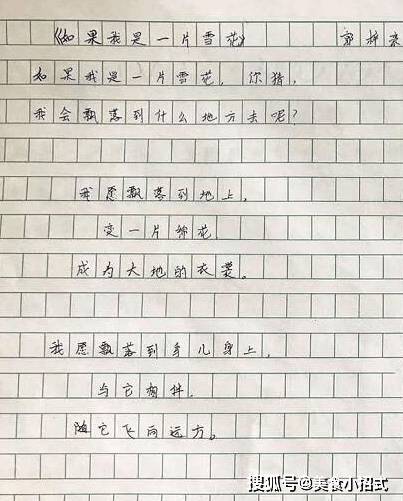 《如果我是一片雪花》 郭梓
如果我是一片雪花,你猜,
我会飘落到什么地方去呢?
我愿飘落到地上,
变一片棉花,
成为大地的衣裳。
我愿飘落到鸟儿身上,
与它相伴,
随它飞向远方。
搜狐号@美食小招式